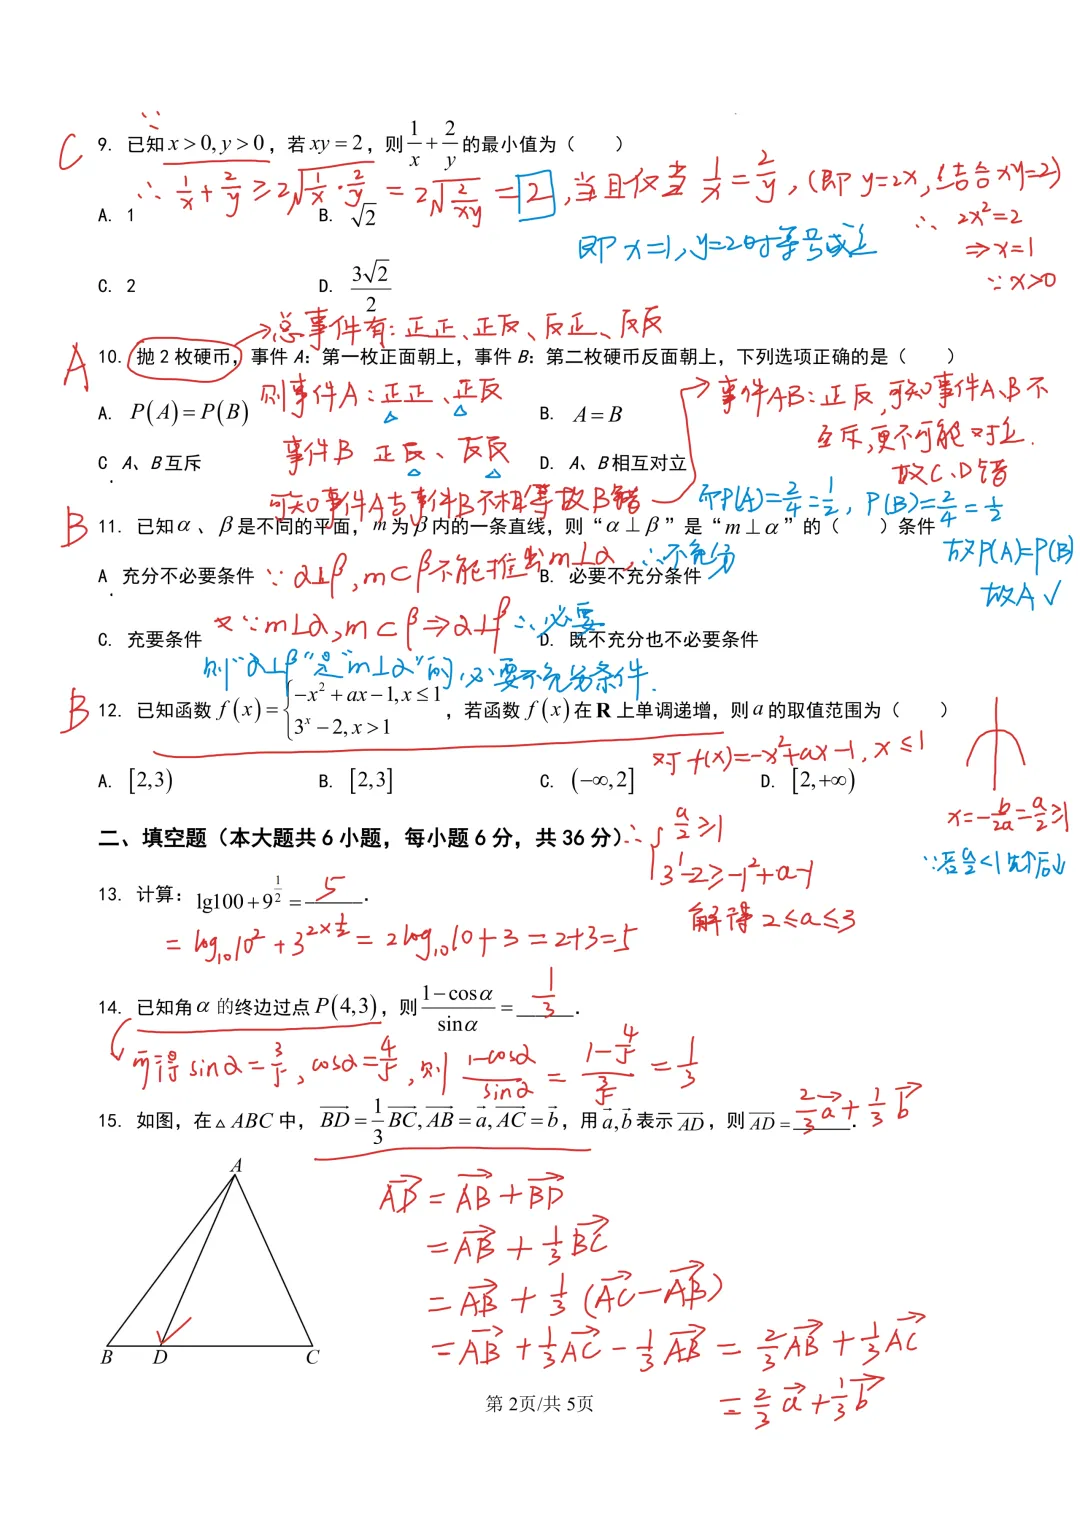 ∵
C 9. 已知 x > 0, y > 0，若 xy = 2，则 1/x + 2/y 的最小值为（ ）
∴ 1/x + 2/y ≥ 2√(1/x · 2/y) = 2√(2/xy) = 2，当且仅当 1/x = 2/y，(即 y=2x，结合 xy=2)
A. 1 B. √2
∴ 2x²=2
即 x=1, y=2时等号成立
⇒ x=1
∵ x>0
C. 2 D. 3√2/2
→总事件有：正正、正反、反正、反反
A 10. 抛 2 枚硬币，事件 A：第一枚正面朝上，事件 B：第二枚硬币反面朝上，下列选项正确的是（ ）
则事件A：正正、正反
→事件AB：正反，可知事件A、B不
互斥，更不可能对立.
故C、D错
A. P(A) = P(B) B. A = B
事件B 正反、反反
C A、B 互斥 D. A、B 相互对立
可知事件A与事件B不相等故B错
而P(A)=2/4=1/2，P(B)=2/4=1/2
故P(A)=P(B)
故A√
B 11. 已知 α 、 β 是不同的平面，m 为 β 内的一条直线，则“ α ⊥ β ”是“ m ⊥ α ”的（ ）条件
A 充分不必要条件 B. 必要不充分条件
∵ α⊥β, m⊂β不能推出m⊥α，∴不充分
C. 充要条件 D. 既不充分也不必要条件
又∵m⊥α, m⊂β⇒α⊥β ∴必要
则“α⊥β”是“m⊥α”的必要不充分条件.
B 12. 已知函数 f(x) = {−x² + ax − 1, x ≤ 1
3ˣ − 2, x > 1 ，若函数 f(x) 在 R 上单调递增，则 a 的取值范围为（ ）
对f(x)=-x²+ax-1, x≤1
A. [2,3) B. [2,3] C. (−∞,2] D. [2,+∞)
x=-b/2a=a/2≥1
∵若a/2<1先个后↓
二、填空题（本大题共 6 小题，每小题 6 分，共 36 分）
∴ { a/2≥1
3¹-2≥-1²+a-1
解得 2≤a≤3
13. 计算：lg100 + 9^(1/2) = 5.
= log₁₀10² + 3^(2×1/2) = 2log₁₀10+3 = 2+3=5
14. 已知角 α 的终边过点 P(4,3)，则 (1−cosα)/sinα = 1/3.
可得 sinα=3/5, cosα=4/5，则 (1-cosα)/sinα = (1-4/5)/(3/5) = 1/3
15. 如图，在△ABC 中，BD = 1/3 BC, AB = a, AC = b，用 a, b 表示 AD，则 AD = 2/3 a + 1/3 b.
AD = AB + BD
= AB + 1/3 BC
= AB + 1/3 (AC − AB)
= AB + 1/3 AC − 1/3 AB = 2/3 AB + 1/3 AC
= 2/3 a + 1/3 b
A
B D C
第 2页/共 5页